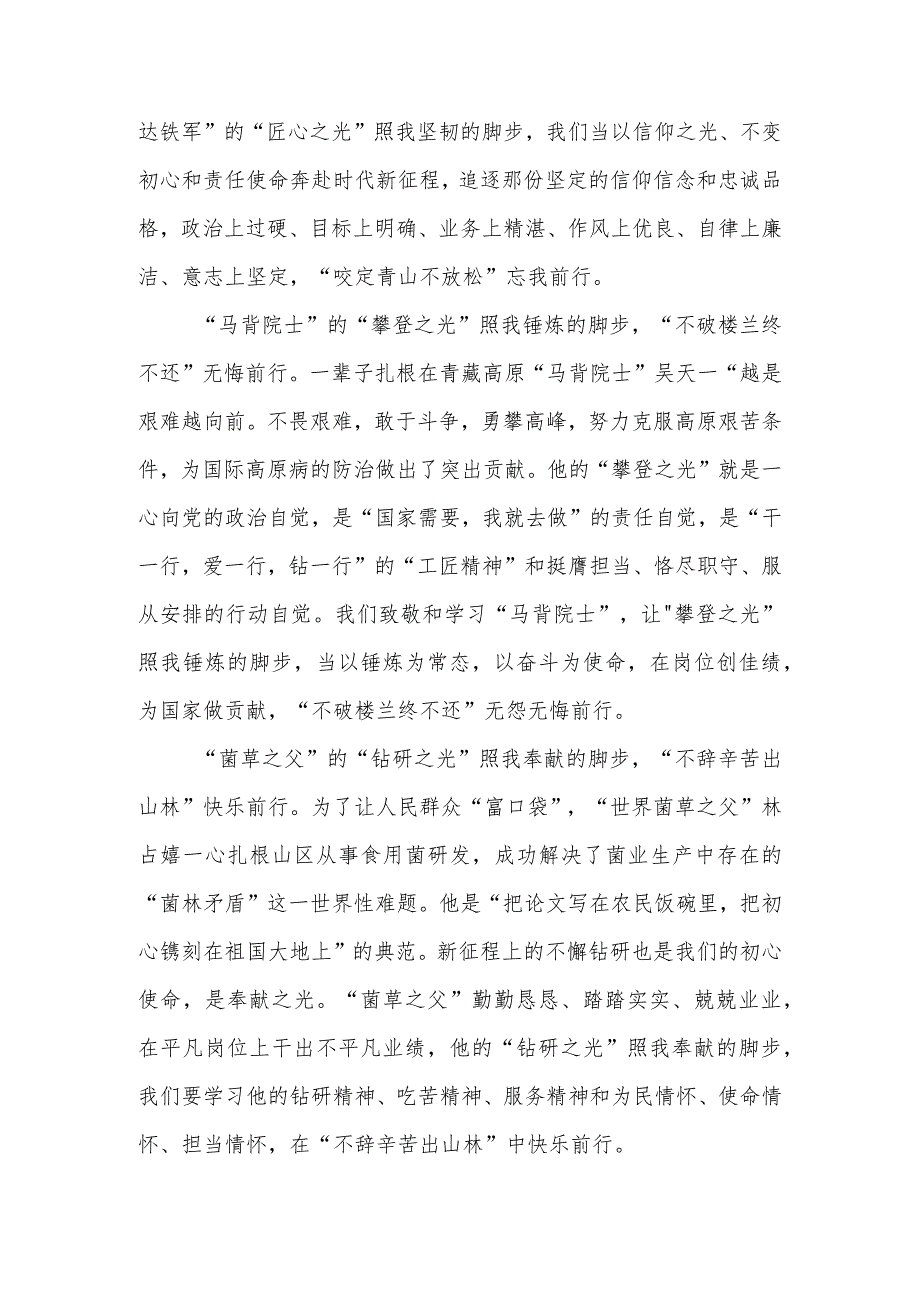 达铁军”的“匠心之光”照我坚韧的脚步，我们当以信仰之光、不变
初心和责任使命奔赴时代新征程，追逐那份坚定的信仰信念和忠诚品
格，政治上过硬、目标上明确、业务上精湛、作风上优良、自律上廉
洁、意志上坚定，“咬定青山不放松”忘我前行。
“马背院士”的“攀登之光”照我锤炼的脚步，“不破楼兰终
不还”无悔前行。一辈子扎根在青藏高原“马背院士”吴天一“越是
艰难越向前。不畏艰难，敢于斗争，勇攀高峰，努力克服高原艰苦条
件，为国际高原病的防治做出了突出贡献。他的“攀登之光”就是一
心向党的政治自觉，是“国家需要，我就去做”的责任自觉，是“干
一行，爱一行，钻一行”的“工匠精神”和挺膺担当、恪尽职守、服
从安排的行动自觉。我们致敬和学习“马背院士”，让"攀登之光”
照我锤炼的脚步，当以锤炼为常态，以奋斗为使命，在岗位创佳绩，
为国家做贡献，“不破楼兰终不还”无怨无悔前行。
“菌草之父”的“钻研之光”照我奉献的脚步，“不辞辛苦出
山林”快乐前行。为了让人民群众“富口袋”，“世界菌草之父”林
占嬉一心扎根山区从事食用菌研发，成功解决了菌业生产中存在的
“菌林矛盾”这一世界性难题。他是“把论文写在农民饭碗里，把初
心镌刻在祖国大地上”的典范。新征程上的不懈钻研也是我们的初心
使命，是奉献之光。“菌草之父”勤勤恳恳、踏踏实实、兢兢业业，
在平凡岗位上干出不平凡业绩，他的“钻研之光”照我奉献的脚步，
我们要学习他的钻研精神、吃苦精神、服务精神和为民情怀、使命情
怀、担当情怀，在“不辞辛苦出山林”中快乐前行。